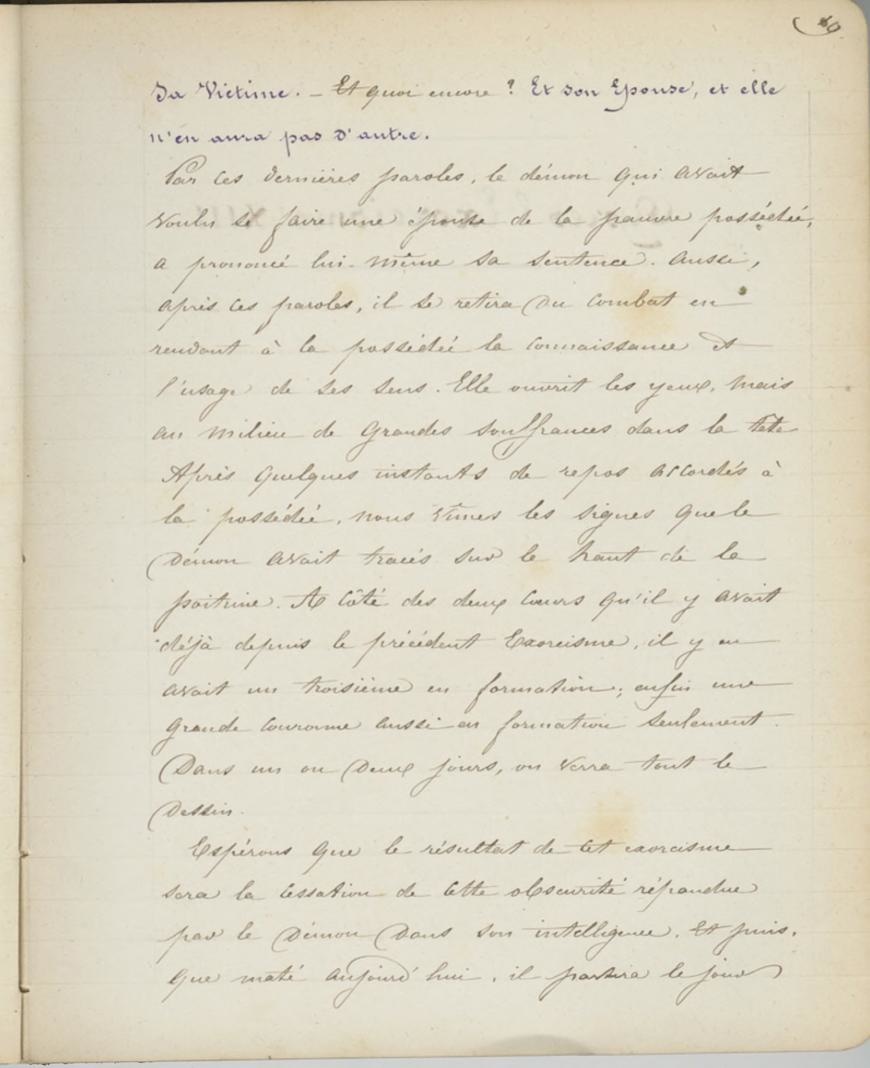 Sa Victime. – Et quoi encore ? Et son Epouse, et elle
n'en aura pas d'autre.
Par ces dernières paroles, le démon qui avait
voulu se faire une épouse de la pauvre possédée,
a prononcé lui-même sa sentence. Aussi,
après ces paroles, il se retira du combat en
rendant à la possédée la connaissance et
l'usage de ses sens. Elle ouvrit les yeux, mais
au milieu de grandes souffrances dans la tête
Après quelques instants de repos accordés à
la possédée, nous vîmes les signes que le
Démon avait tracés sur le haut de la
poitrine. A côté des deux cœurs qu'il y avait
déjà depuis le précédent Exorcisme, il y en
avait un troisième en formation; enfin une
grande couronne aussi en formation seulement.
Dans un ou deux jours, on verra tout le
Dessin.
Espérons que le résultat de cet exorcisme
sera la cessation de cette obscurité répandue
par le Démon dans son intelligence. Et puis,
que maté aujourd'hui, il partira le jour